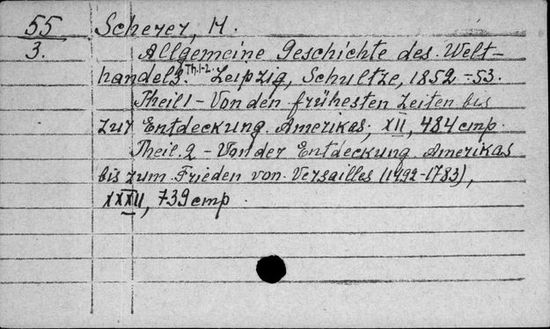 55 Scherer, H.
3. Allgemeine Geschichte des Welt-
handels. Th.1-2. Leipzig, Schultze, 1852-53.
Theil 1 - Von den frühesten Zeiten bis
zur Entdeckung Amerikas, XII, 484 стр.
Theil. 2 - Von der Entdeckung Amerikas
bis zum Frieden von Versailles (1492-1783),
XXXII, 739 стр.